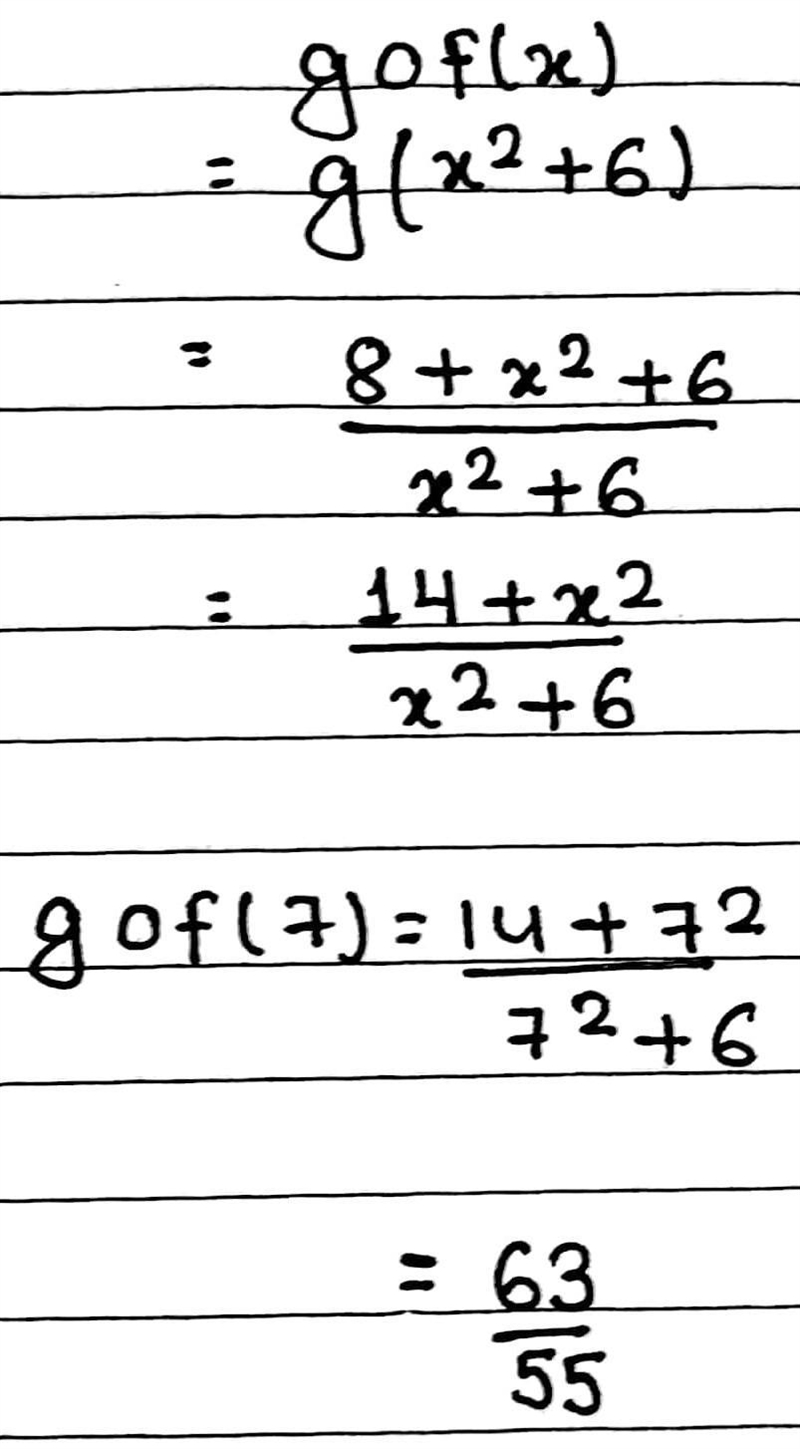 gof(x)
= g(x²+6)
= 8 + x² + 6
x² + 6
= 14 + x²
x² + 6
gof(7) = 14 + 7²
7² + 6
= 63
55